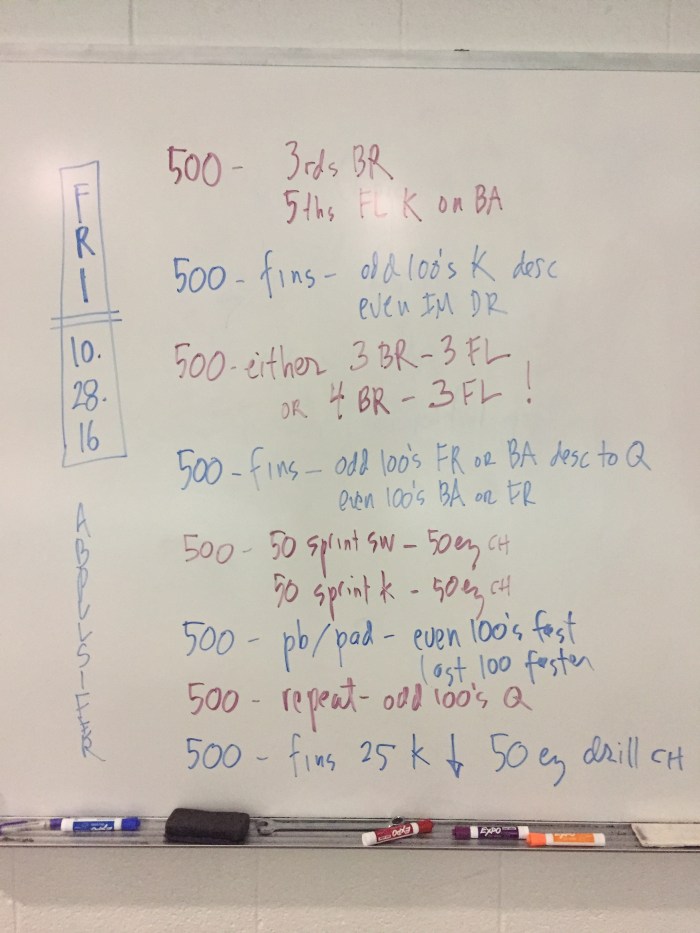 FRI
10.
28.
16
500 - 3rds BR
5ths FL K on BA
500 - fins - odd 100's K desc
even IM DR
500 - either 3 BR - 3 FL
OR 4 BR - 3 FL !
500 - fins - odd 100's FR or BA desc to Q
even 100's BA or FR
500 - 50 sprint sw - 50 ez CH
50 sprint k - 50 ez CH
500 - pb/pad - even 100's fast
last 100 faster
500 - repeat - odd 100's Q
500 - fins 25 k ↓ 50 ez drill CH
EXPO
EXPO